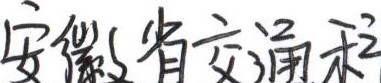 安徽省交通和